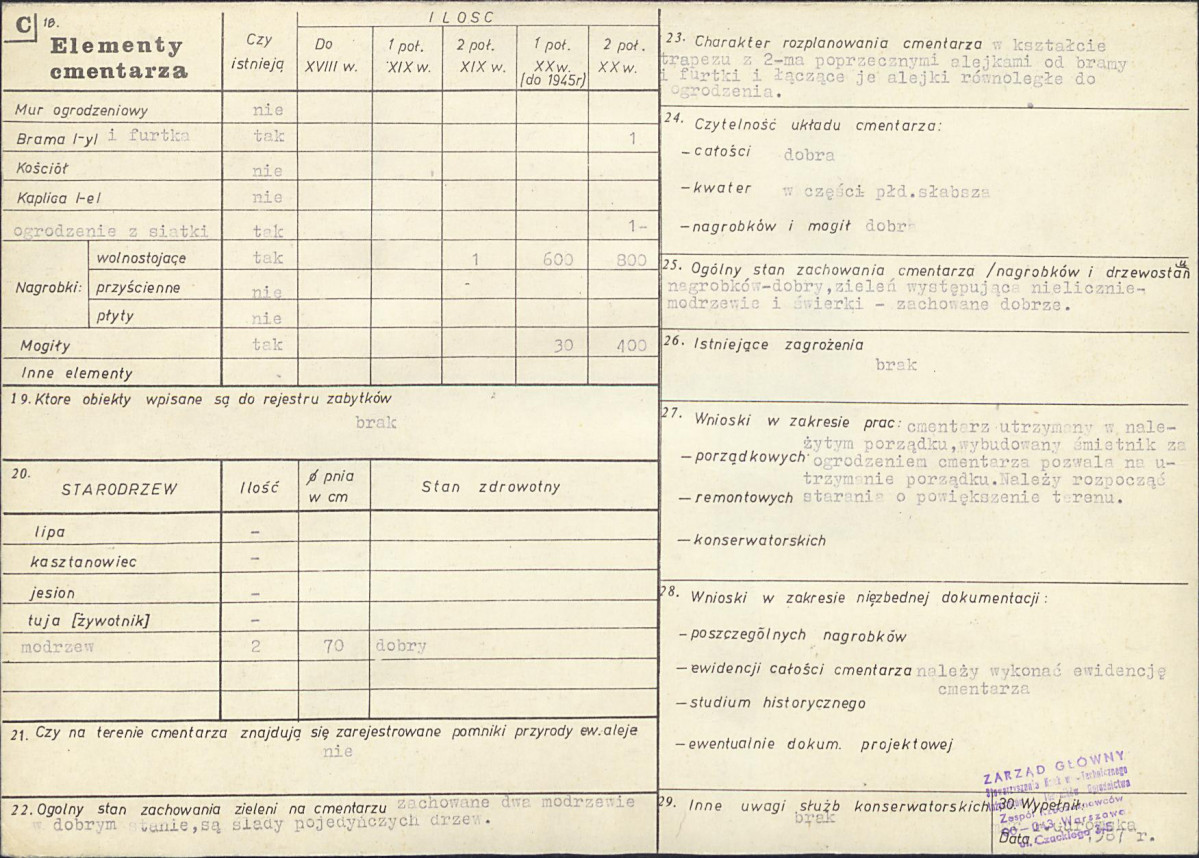 C 18.
Elementy cmentarza
Czy istnieją
ILOSC
Do XVIII w.
1 poł. XIX w.
2 poł. XIX w.
1 poł. XX w. [do 1945r]
2 poł. XX w.
Mur ogrodzeniowy nie
Brama /-y/ i furtka tak 1
Kościół nie
Kaplica /-e/ nie
ogrodzenie z siatki tak 1-
Nagrobki: wolnostojące tak 1 600 800
przyścienne nie
płyty nie
Mogiły tak 30 400
Inne elementy
19. Ktore obiekty wpisane są do rejestru zabytków
brak
20. STARODRZEW Ilość ø pnia w cm Stan zdrowotny
lipa –
kasztanowiec –
jesion –
tuja [żywotnik] –
modrzew 2 70 dobry
21. Czy na terenie cmentarza znajdują się zarejestrowane pomniki przyrody ew. aleje
nie
22. Ogolny stan zachowania zieleni na cmentarzu zachowane dwa modrzewie
w dobrym stanie, są slady pojedyńczych drzew.
23. Charakter rozplanowania cmentarza w kształcie
trapezu z 2-ma poprzecznymi alejkami od bramy
i furtki i łączące je alejki równoległe do
ogrodzenia.
24. Czytelność układu cmentarza:
– całości dobra
– kwater w części płd.słabsza
– nagrobków i mogił dobra
25. Ogólny stan zachowania cmentarza /nagrobków i drzewostanu
nagrobków-dobry,zieleń występująca nielicznie-
modrzewie i świerki - zachowane dobrze.
26. Istniejące zagrożenia
brak
27. Wnioski w zakresie prac: cmentarz utrzymany w nale-
żytym porządku,wybudowany śmietnik za
– porządkowych ogrodzeniem cmentarza pozwala na u-
trzymanie porządku.Należy rozpocząć
– remontowych starania o powiększenie terenu.
– konserwatorskich
28. Wnioski w zakresie niezbednej dokumentacji:
– poszczególnych nagrobków
– ewidencji całości cmentarza należy wykonać ewidencję
cmentarza
– studium historycznego
– ewentualnie dokum. projektowej
29. Inne uwagi służb konserwatorskich
brak
30. Wypełnił
Data 1987 r.
ZARZĄD GŁÓWNY
Zespół Rzeczoznawców
00-043 Warszawa
ul. Czackiego 3/5